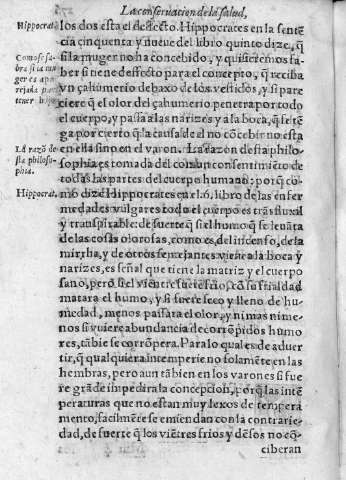 La conseruacion de la salud,
Hippocrat.
los dos esta el defecto. Hippocrates en la sentē
cia cinquenta y nueue del libro quinto dize, q̄
Como se sa-
bra si la mu-
ger es apa-
rejada para
tener hijo
si la muger no ha concebido, y quisieremos sa-
ber si tiene deffecto para el concepto, q̄ reciba
vn çahumerio debaxo de los vestidos, y si pare
ciere q̄ el olor del çahumerio penetra por todo
el cuerpo, y passa a las narizes y a la boca, q̄ se tē
ga por cierto q̄ la causa de el no cōcebir no esta
La razō de
sta philoso-
phia.
en ella sino en el varon. La razon desta philo-
sophia es tomada del comun consentimiento de
todas las partes del cuerpo humano: porq̄ co-
Hippocrat.
mo dize Hippocrates en el .6. libro de las enfer
medades vulgares todo el cuerpo es trāsfluxal
y transpirable: de suerte q̄ si el humo q̄ se leuāta
de las cosas olorosas, como es, del incenso, de la
mirrha, y de otros semejantes viene a la boca y
narizes, es señal que tiene la matriz y el cuerpo
sano, pero si el vientre fuere frio, cō su frialdad
matara el humo, y si fuere seco y lleno de hu-
medad, menos passara el olor, y ni mas ni me-
nos si vuiere abundancia de corrōpidos humo
res, tābiē se corrōpera. Para lo qual es de aduer
tir, q̄ qualquiera intemperie no solamēte en las
hembras, pero aun tābien en los varones si fue
re grāde impedira la concepcion, porq̄ las intē
peraturas que no estan muy lexos de tempera
mento, facilmēte se emiendan con la contrarie-
dad, de suerte q̄ los viētres frios y dēsos no cō-
ciberan